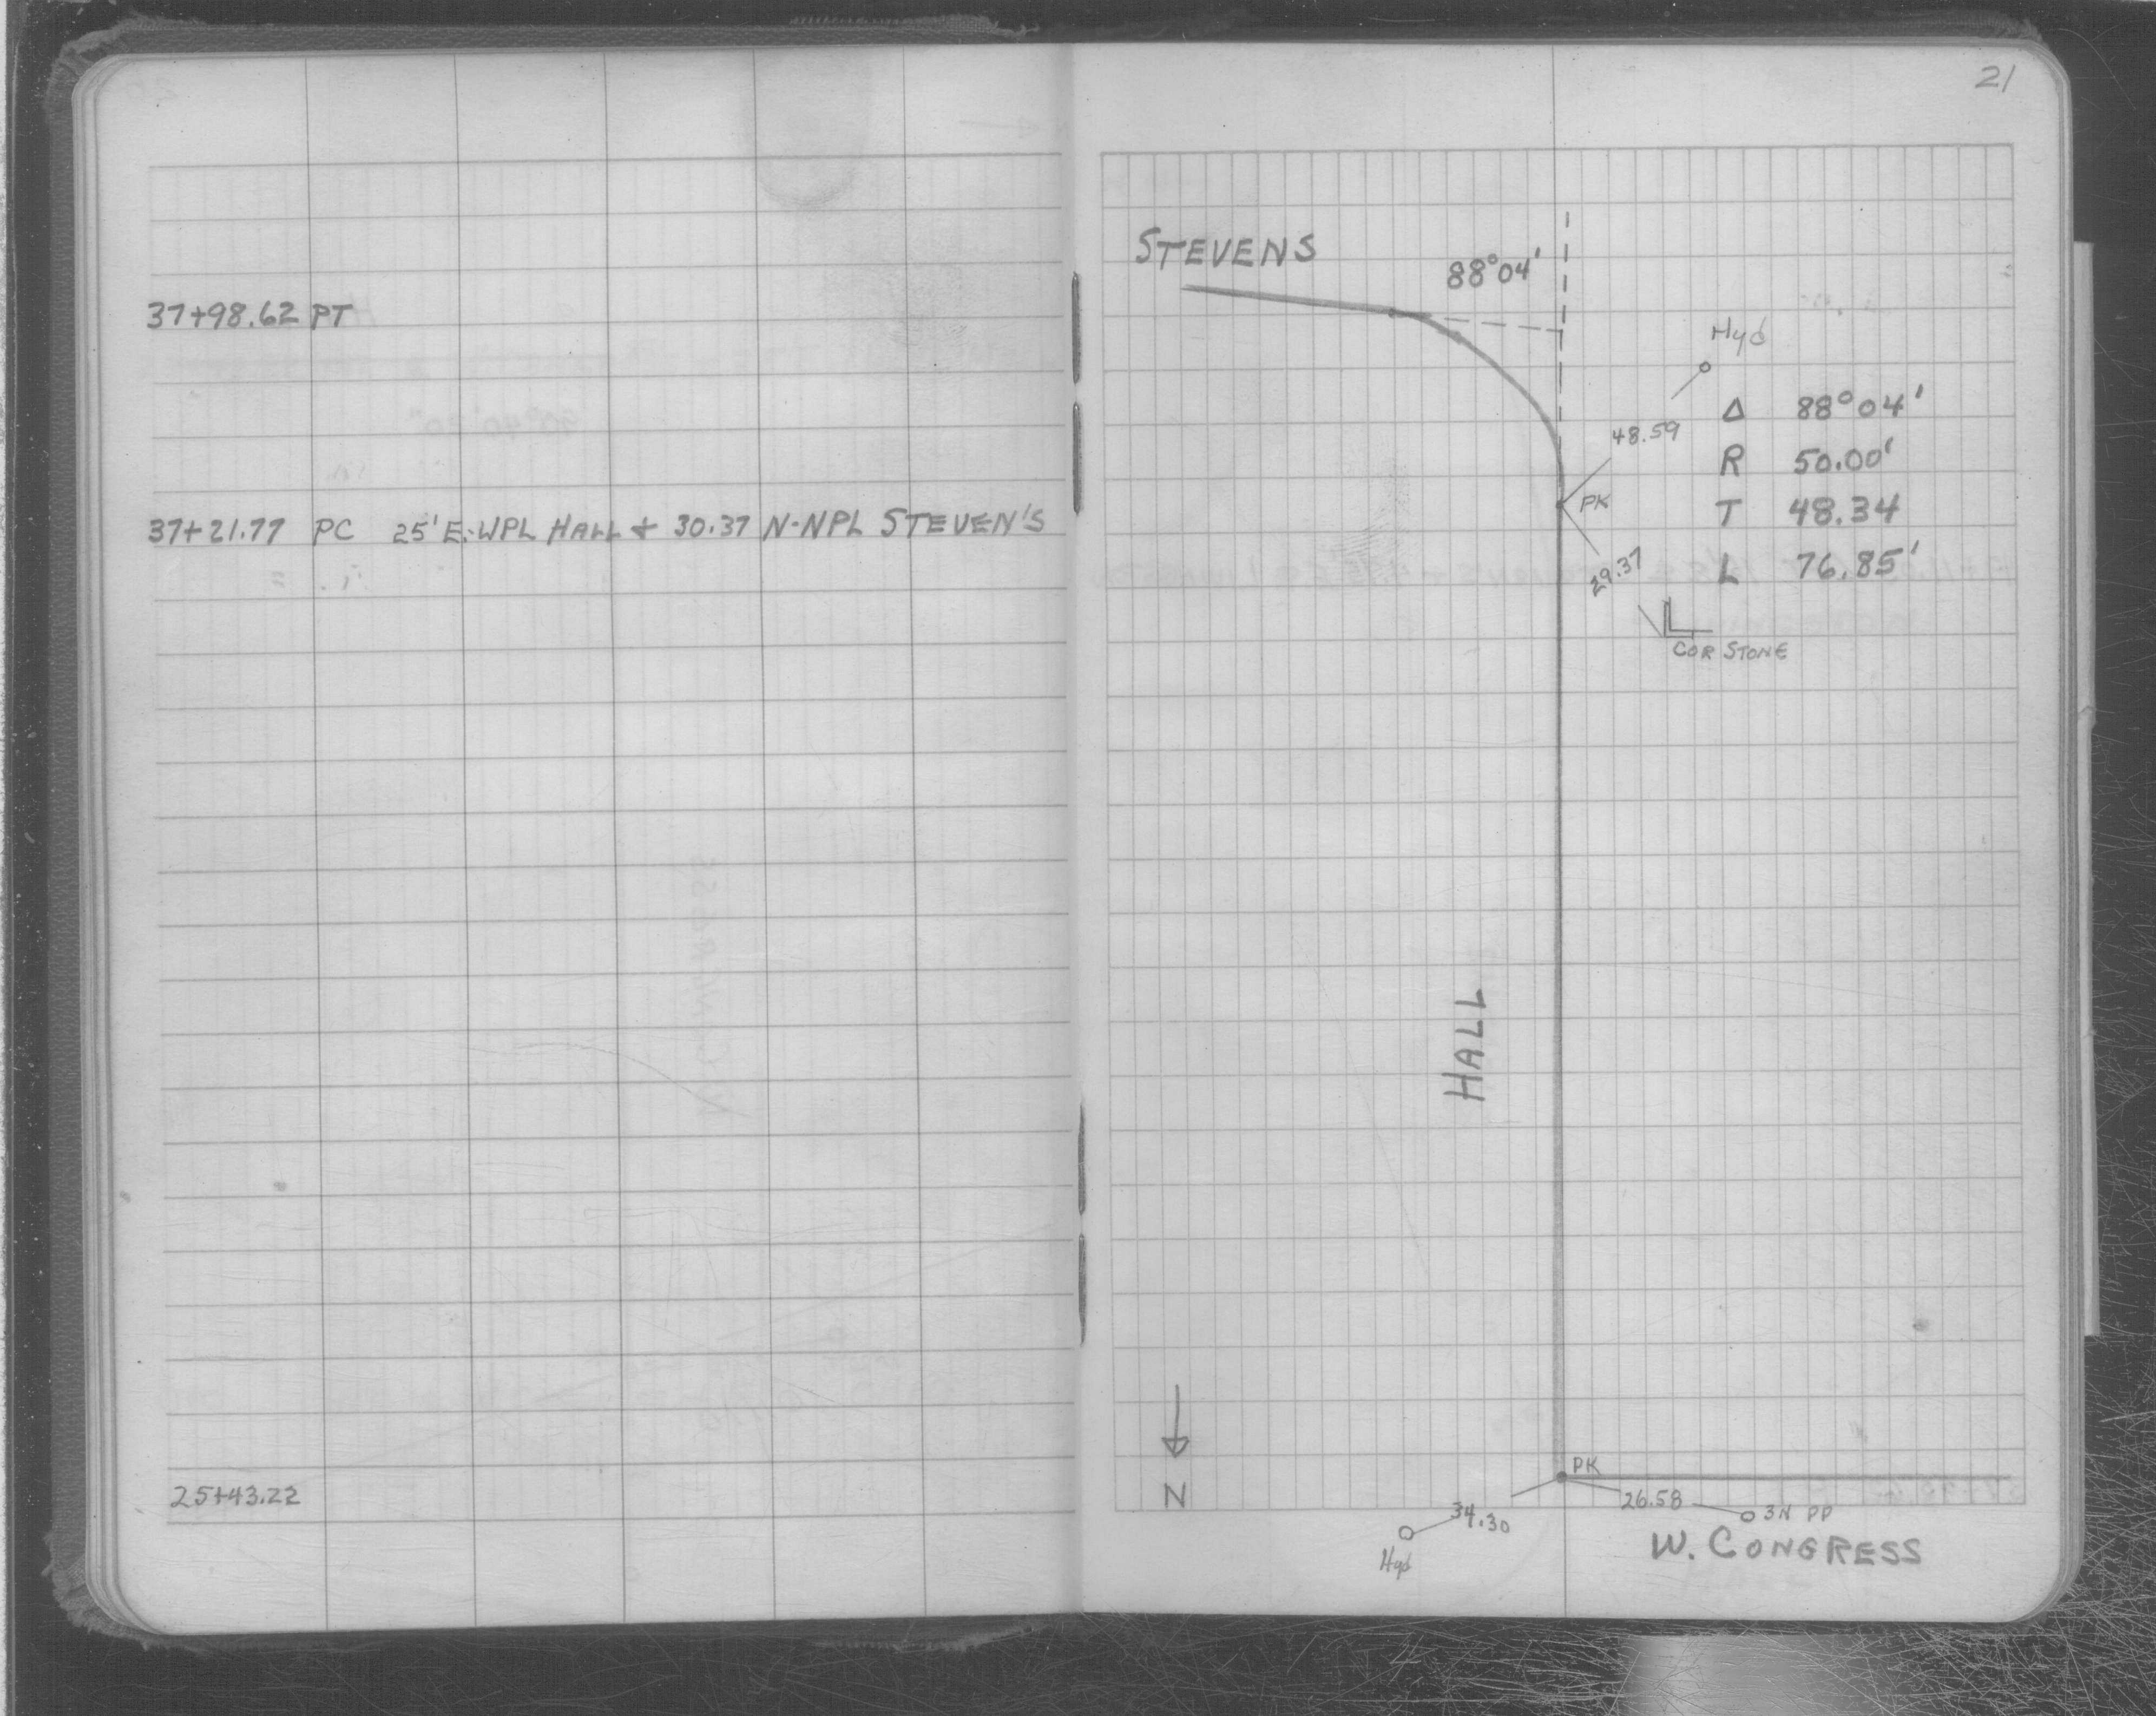 37+98.62 PT
37+21.77 PC 25' E. WPL HALL + 30.37 N-NPL STEVEN'S
25+43.22
21
STEVENS
88°04'
Hyd
48.59
Δ 88°04'
R 50.00'
PK
T 48.34
29.37
L 76.85'
COR STONE
HALL
N
PK
34.30
26.58
3N PP
Hyd
W. CONGRESS